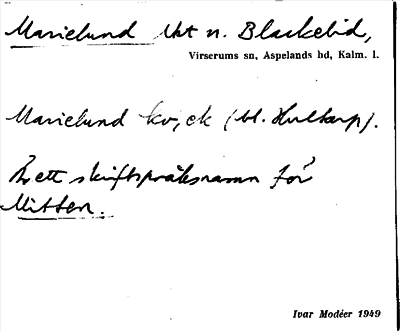 Marielund Ukt n. Blackelid,
Virserums sn, Aspelands hd, Kalm. l.
Marielund kv, ek (bl. Hultarp).
Är ett skriftspråksnamn för
Mitten.
Ivar Modéer 1949